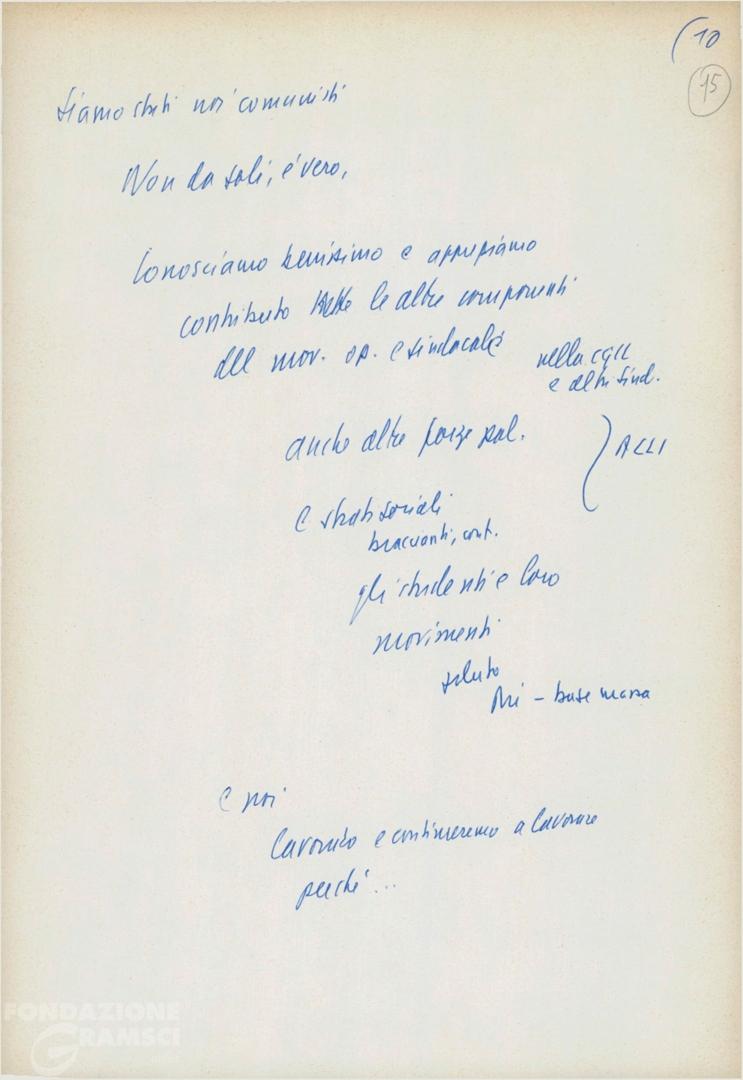 (10
15
siamo stati noi comunisti
Non da soli, è vero,
Conosciamo benissimo e apprezziamo
contributo delle altre componenti
del mov. op. e sindacale
nella CGIL
e altri sind.
anche altre forze pol.
) ACLI
e strati sociali
braccianti, cont.
gli studenti e loro
movimenti
saluto
– base massa
e noi
lavorato e continueremo a lavorare
perché...
FONDAZIONE
GRAMSCI